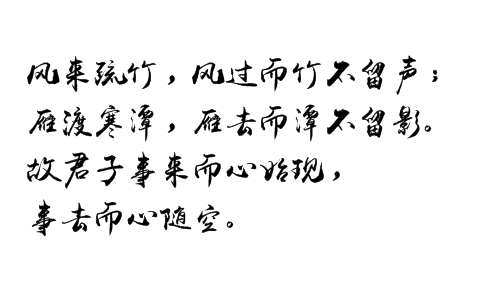 风来疏竹，风过而竹不留声；
雁渡寒潭，雁去而潭不留影。
故君子事来而心始现，
事去而心随空。